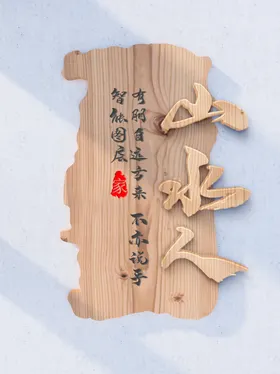 山水人
有朋自远方来 不亦说乎
智能图层
家